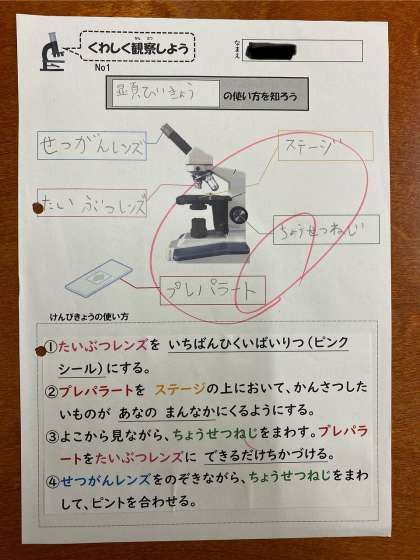 くわしく観察しよう
かんさつ
なまえ
No1
顕びきょう の使い方を知ろう
せつがんレンズ
ステージ
たいぶつレンズ
ちょうせつねじ
プレパラート
けんびきょうの使い方
①たいぶつレンズを いちばんひくいばいりつ(ピンク
シール)にする。
②プレパラートを ステージの上において、かんさつし
たいものが あなの まんなかにくるようにする。
③よこから見ながら、ちょうせつねじをまわす。プレパラ
ートをたいぶつレンズに できるだけちかづける。
④せつがんレンズをのぞきながら、ちょうせつねじをまわ
して、ピントを合わせる。